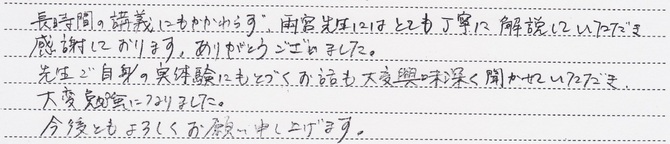 長時間の講義にもかかわらず、雨宮先生にはとても丁寧に解説していただき
感謝しております。ありがとうございました。
先生ご自身の実体験にもとづくお話も大変興味深く聞かせていただき、
大変勉強になりました。
今後ともよろしくお願い申し上げます。